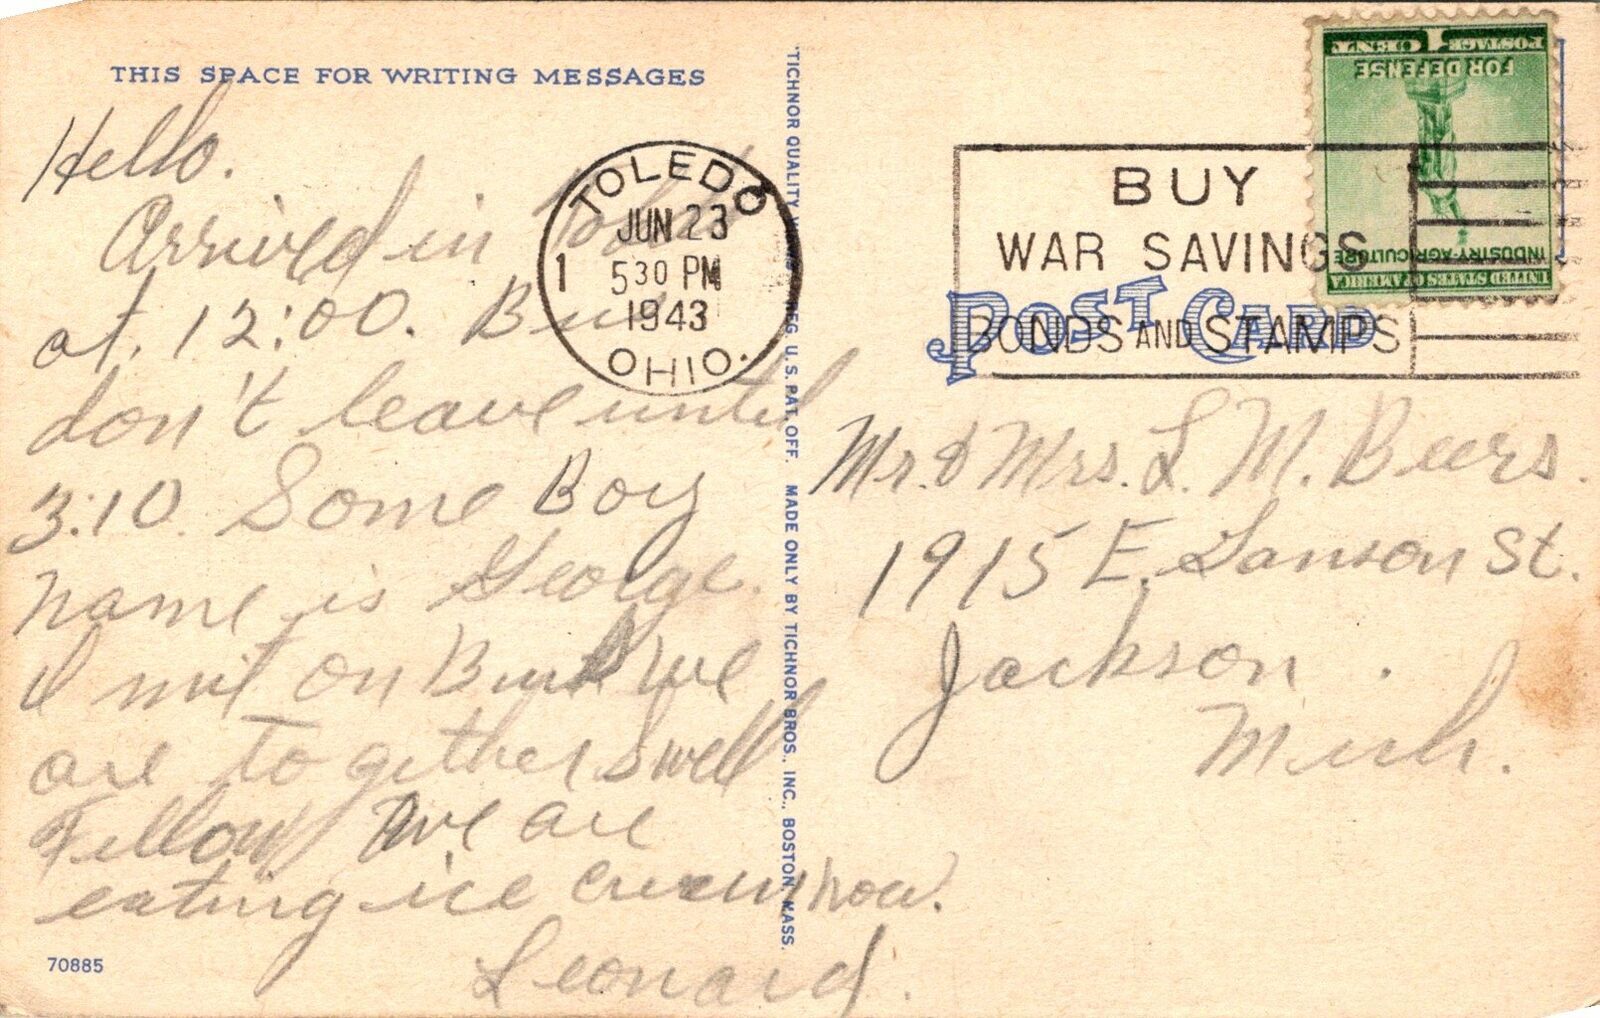 THIS SPACE FOR WRITING MESSAGES
Hello.
Arrived in Toledo
at. 12:00. Bus
don't leave until
3:10. Some Boy
name is George.
I mit on Bus & we
are together swell
Fellow we are
eating ice cream now.
Leonard.
70885
TICHNOR QUALITY REG. U. S. PAT. OFF. MADE ONLY BY TICHNOR BROS., INC., BOSTON, MASS.
TOLEDO
JUN 23
1 5 30 PM
1943
OHIO.
BUY
WAR SAVINGS
BONDS AND STAMPS
1 CENT POSTAGE
FOR DEFENSE
INDUSTRY-AGRICULTURE
UNITED STATES OF AMERICA
POST CARD
Mr. & Mrs. L. M. Beers.
1915 E. Ganson St.
Jackson.
Mich.